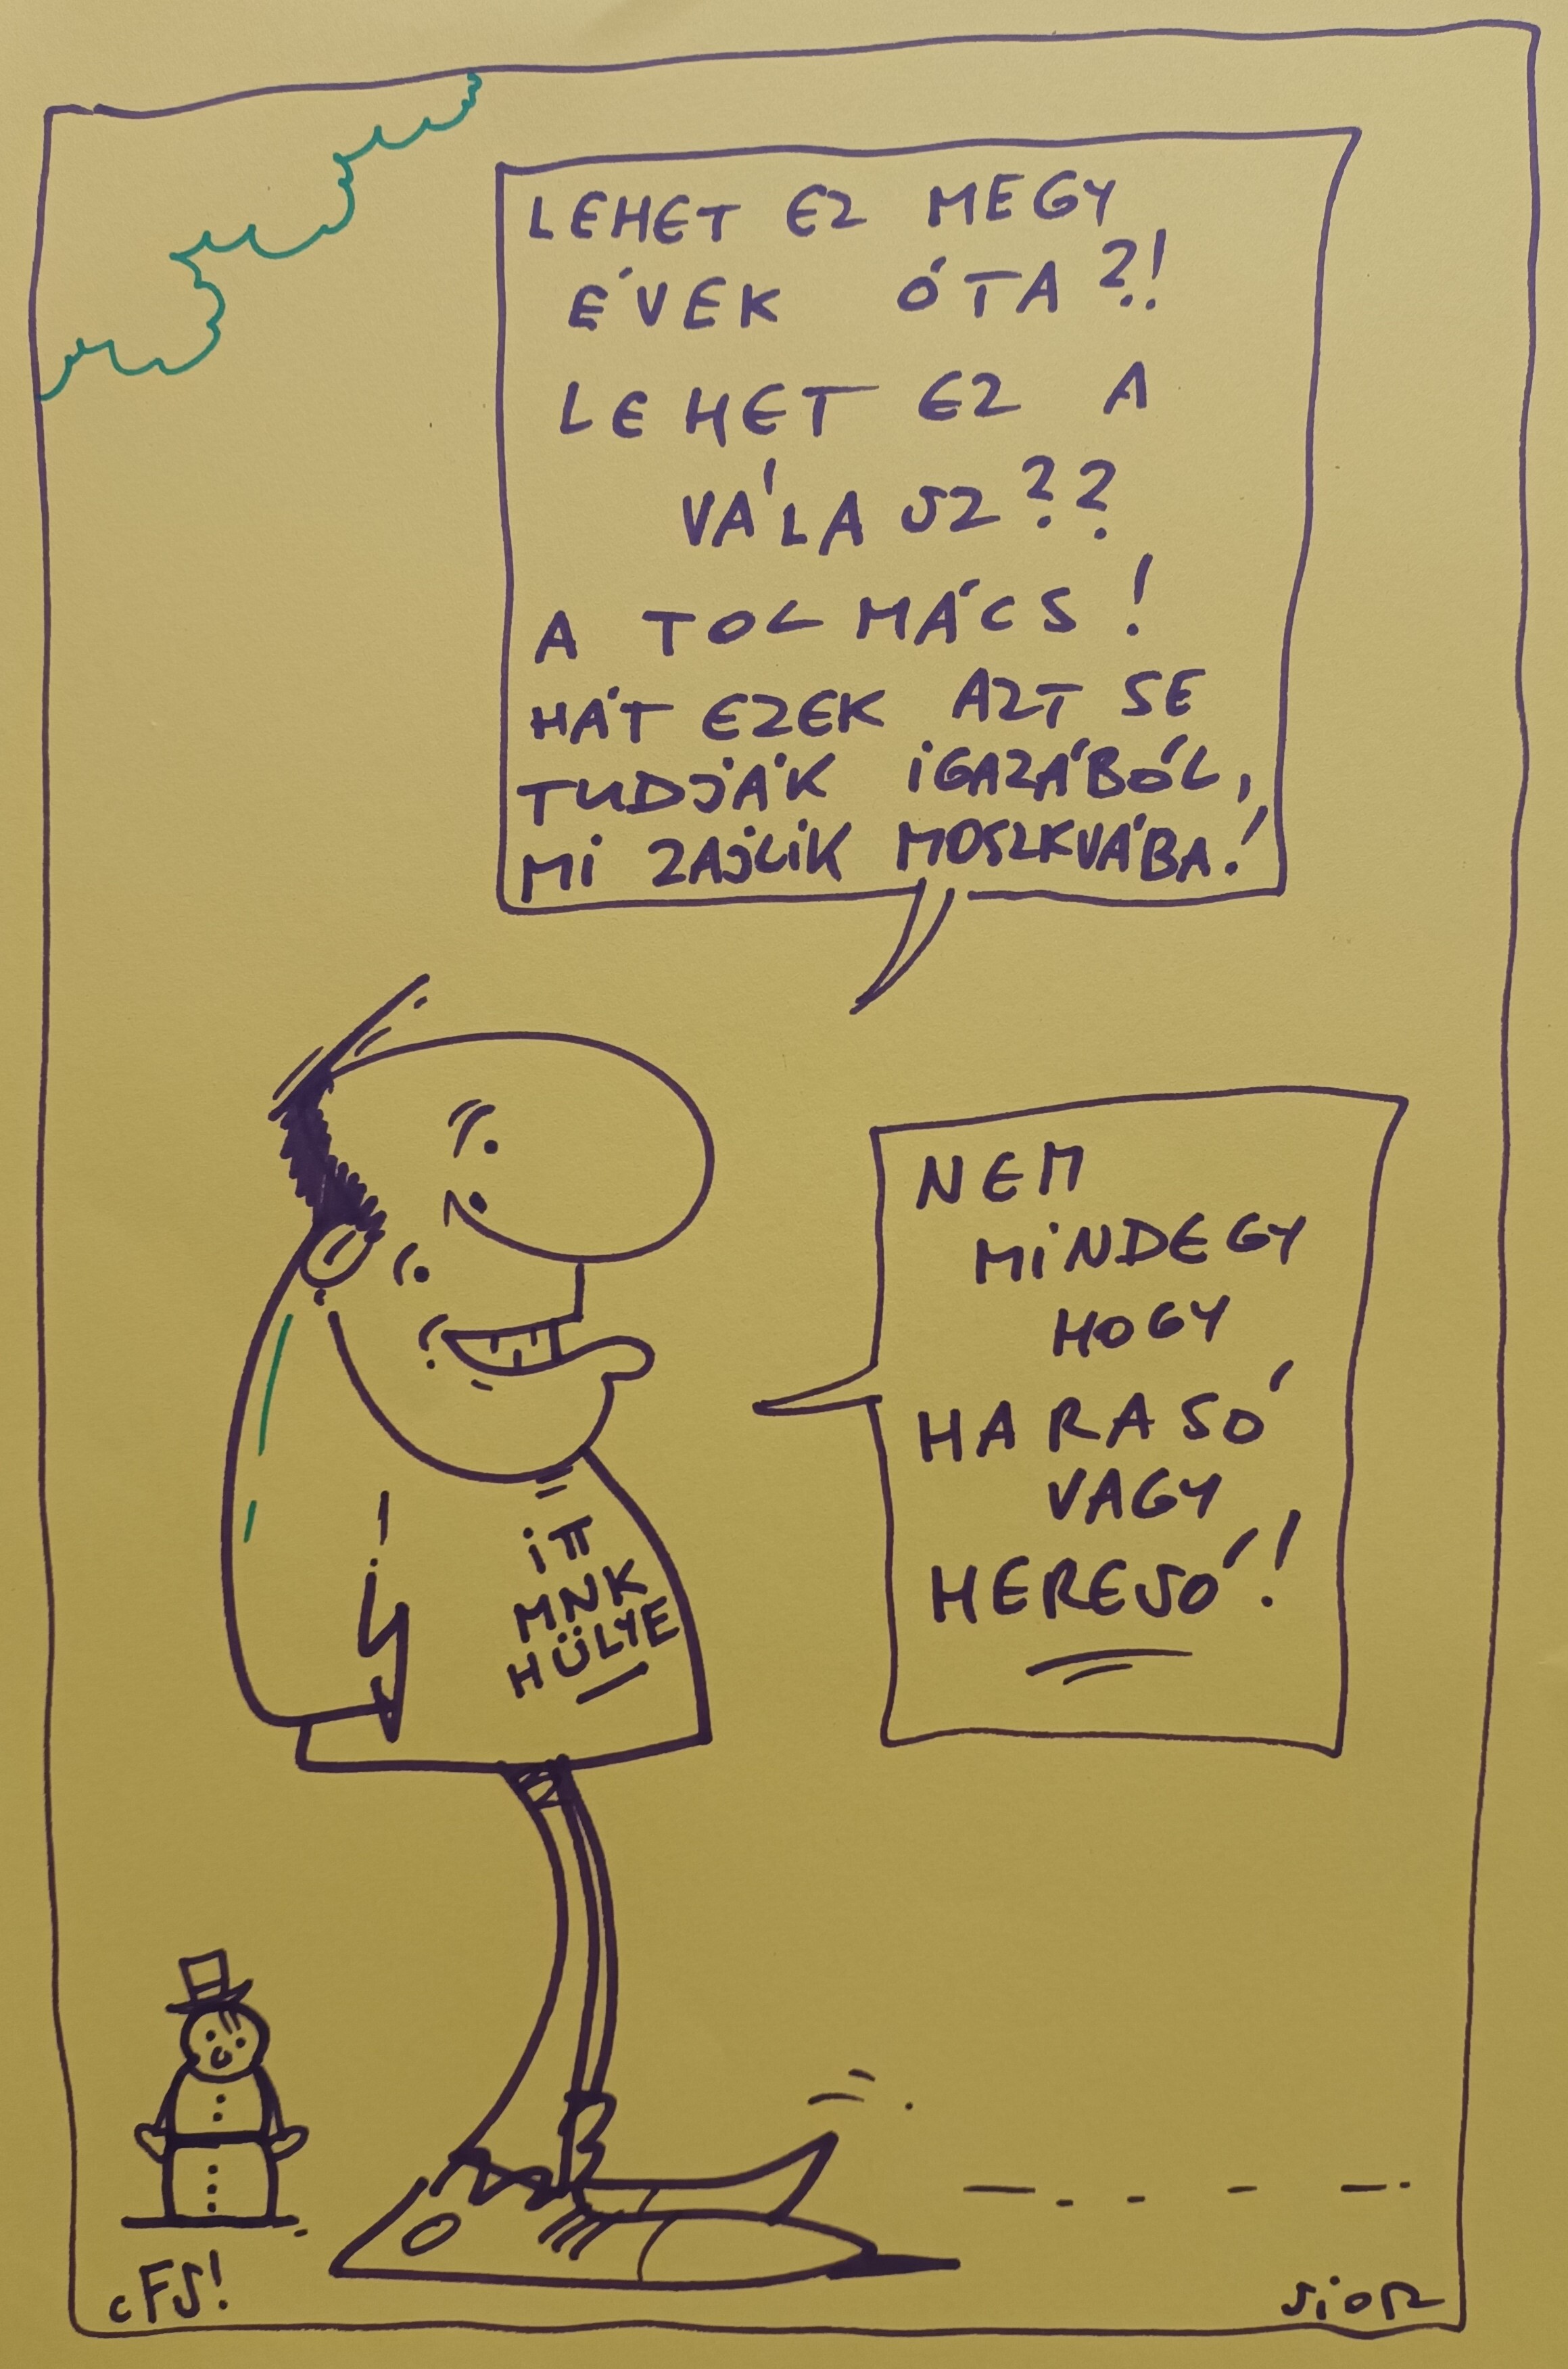 LEHET EZ MEGY
ÉVEK ÓTA?!
LEHET EZ A
VÁLASZ??
A TOLMÁCS!
HÁT EZEK AZT SE
TUDJÁK IGAZÁBÓL,
MI ZAJLIK MOSZKVÁBA!
NEM
MINDEGY
HOGY
HARASÓ
VAGY
HERESÓ!
ITT
MNK
HÜLYE
CFS!
SIOR